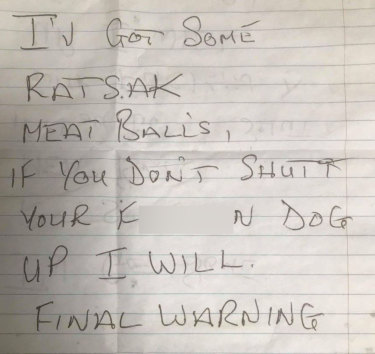 I'V GOT SOME
RATSAK
MEAT BALLS,
IF YOU DON'T SHUTT
YOUR N DOG
UP I WILL.
FINAL WARNING